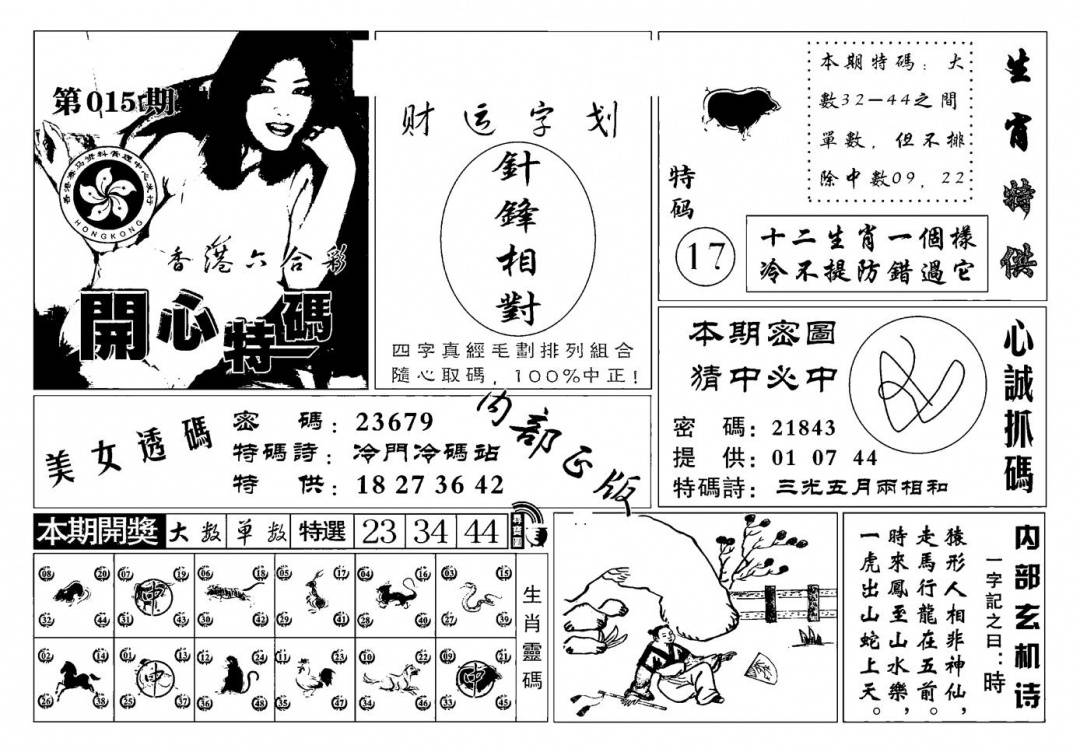 第015期
香港赛马资料管理中心发行
HONGKONG
香港六合彩
開心特碼
财运字划
針鋒相對
四字真經毛劃排列組合
隨心取碼，100%中正！
本期特碼：大
數32—44之間
單數，但不排
除中數09，22
特码
17
十二生肖一個樣
冷不提防錯過它
生肖特供
美女透碼
密碼：23679
特碼詩：冷門冷碼站
特供：18 27 36 42
内部正版
本期密圖
猜中必中
密碼：21843
提供：01 07 44
特碼詩：三光五月兩相和
心誠抓碼
本期開獎 大数 单数 特選 23 34 44
08 20 07 19 06 18 05 17 04 16 03 15
32 44 31 43 30 42 29 41 28 40 27 39
02 14 01 13 12 24 11 23 10 22 09 21
26 38 25 37 36 48 35 47 34 46 33 45
生肖靈碼
内部玄机诗
一字記之曰：時
猿形人相非神仙，
走馬行龍在五前。
時來鳳至山水樂，
一虎出山蛇上天。